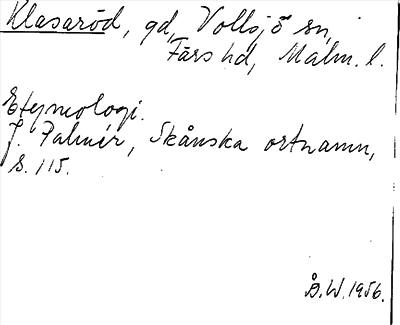 Klasaröd, gd, Vollsjö sn,
Färs hd, Malm. l.
Etymologi.
J. Palmér, Skånska ortnamn,
s. 115.
Å.W. 1956.